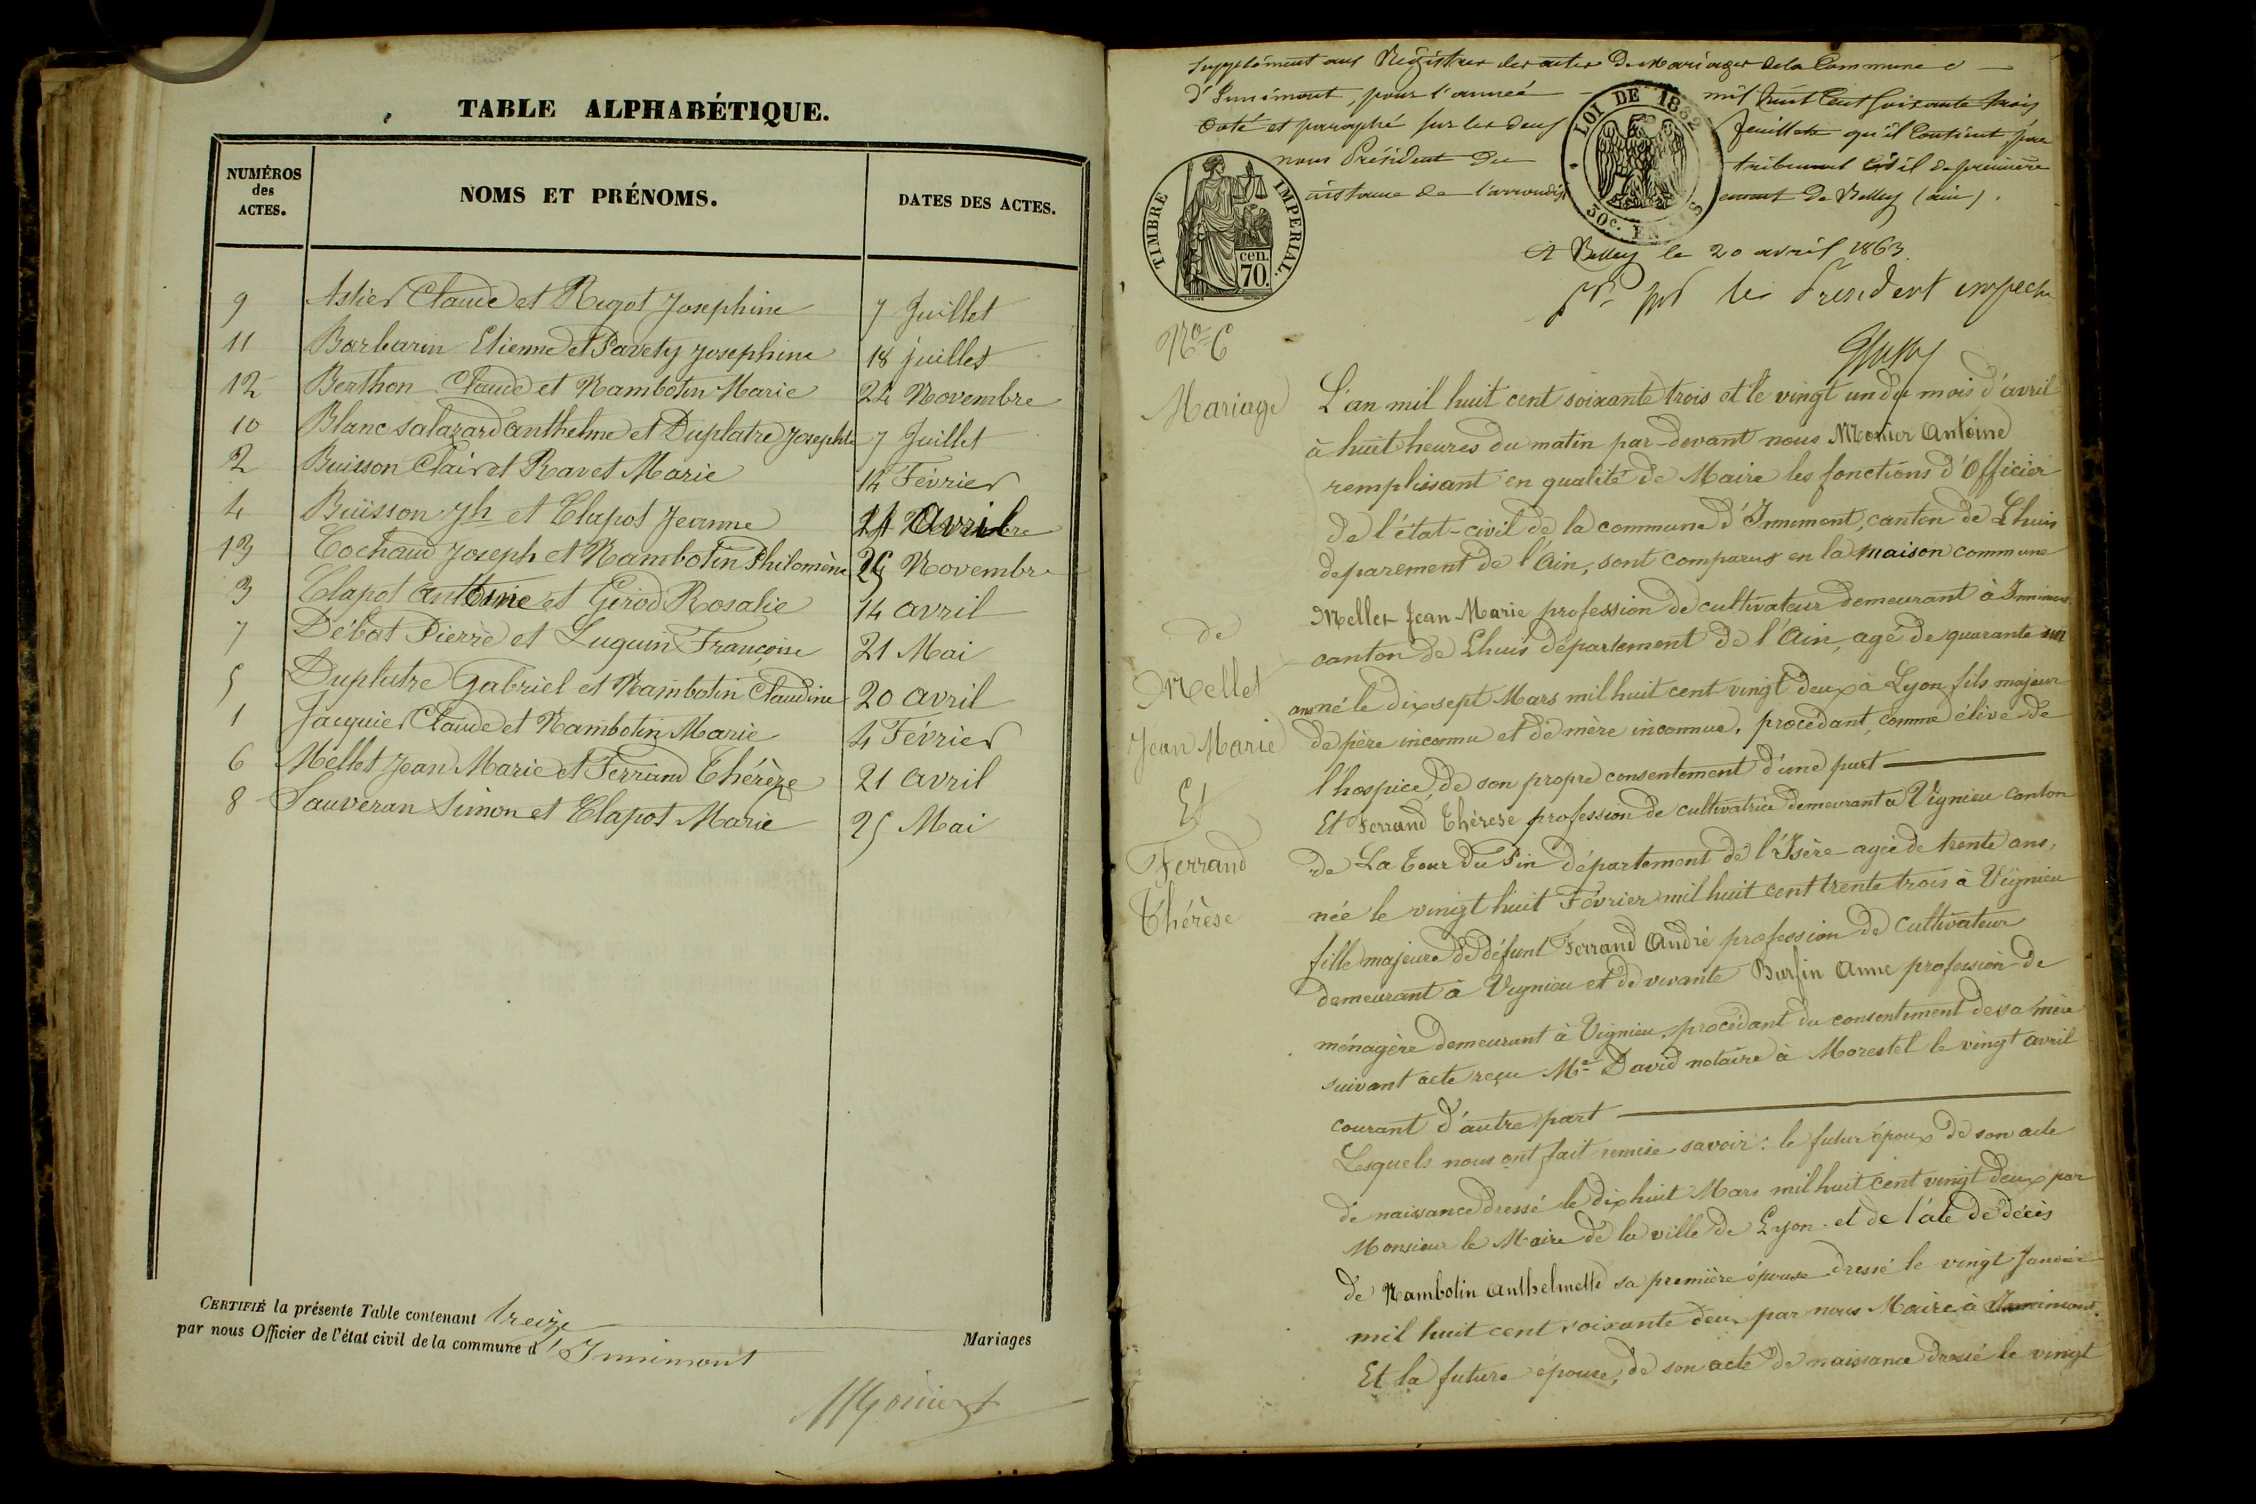 TABLE ALPHABÉTIQUE.
NUMÉROS
des
ACTES.
NOMS ET PRÉNOMS.
DATES DES ACTES.
9 Astier Claude et Rigot Josephine 7 Juillet
11 Barbarin Etienne et Pavety Josephine 18 juillet
12 Berthon Claude et Rambotin Marie 24 Novembre
10 Blanc Salazard anthelme et Duplatre Josephte 7 Juillet
2 Buisson Clair et Ravet Marie 14 Février
4 Buisson Jh et Clapot Jeanne Avril
13 Cochaud Joseph et Rambotin Philomène 25 Novembre
3 Clapot Antoine et Girod Rosalie 14 avril
7 Débat Pierre et Luguin Françoise 21 Mai
5 Duplatre Gabriel et Rambotin Claudine 20 avril
1 Jacquier Claude et Rambotin Marie 4 Février
6 Mellet Jean Marie et Ferrand Thérèze 21 avril
8 Sauveran Simon et Clapot Marie 25 Mai
CERTIFIÉ la présente Table contenant treize
Mariages
par nous Officier de l'état civil de la commune d'Innimont
Monier
Supplément aux Registres des actes de Mariages de la Commune
d'Innimont, pour l'année mil huit Cent Soixante trois
Coté et paraphé sur les deux feuillets qu'il Contient par
nous Président du tribunal Civil de première
instance de l'arrondissement de Belley (ain).
LOI DE 1832
30c. EN SUS
TIMBRE IMPERIAL.
cen.
70.
A Belley le 20 avril 1863.
le Président empeché
No 6
Mariage
de
Mellet
Jean Marie
Et
Ferrand
Thérèse
L'an mil huit cent soixante trois et le vingt un du mois d'avril
à huit heures du matin par-devant nous Monier Antoine
remplissant en qualité de Maire les fonctions d'Officier
de l'état-civil de la commune d'Innimont, canton de Lhuis
deparement de l'Ain, sont comparus en la maison commune
Mellet Jean Marie profession de cultivateur demeurant à Innimont
canton de Lhuis département de l'Ain, agé de quarante un
ans né le dix sept Mars mil huit cent vingt deux à Lyon fils majeur
de père inconnu et de mère inconnue, procédant, comme élève de
l'hospice, de son propre consentement d'une part
Et Ferrand Thérese profession de cultivatrice demeurant à Vignieu canton
de La Tour du Pin département de l'Isère agée de trente ans,
née le vingt huit Février mil huit cent trente trois à Vignieu
fille majeure de défunt Ferrand André profession de cultivateur
demeurant à Vignieu et de vivante Burfin Anne profession de
ménagère demeurant à Vignieu, procédant du consentement de sa mère
suivant acte reçu Me David notaire à Morestel le vingt avril
courant d'autre part
Lesquels nous ont fait remise savoir: le futur époux de son acte
de naissance dressé le dix huit Mars mil huit cent vingt deux par
Monsieur le Maire de la ville de Lyon et de l'ate de décès
de Rambotin Anthelmette sa première épouse dressé le vingt Janvier
mil huit cent soixante deux par nous Maire à Innimont.
Et la future épouse, de son acte de naissance dressé le vingt